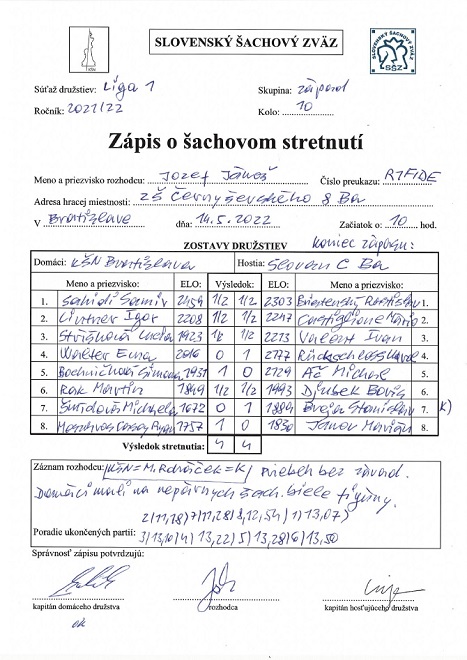 SLOVENSKÝ ŠACHOVÝ ZVÄZ
SLOVENSKÝ ŠACHOVÝ ZVÄZ
SŠZ
Súťaž družstiev: Liga 1 Skupina: západ
Ročník: 2021/22 Kolo: 10
Zápis o šachovom stretnutí
Meno a priezvisko rozhodcu: Jozef Číslo preukazu: R1FIDE
Adresa hracej miestnosti: ZŠ Černyševského 8 Ba
V Bratislave dňa: 14.5.2022 Začiatok o: 10 hod.
ZOSTAVY DRUŽSTIEV koniec zápasu:
Domáci: KŠN Bratislava Hostia: Slovan C Ba
Meno a priezvisko: ELO: Výsledok: ELO: Meno a priezvisko:
1. Samir 2159 1/2 1/2 2303 1.
2. Lintner Igor 2208 1/2 1/2 2217 2.
3. 1923 1/2 1/2 2213 Ivan 3.
4. Walter Ema 2016 0 1 2177 4.
5. Simona 1931 1 0 2129 Ač Michal 5.
6. Rak Martin 1849 1/2 1/2 1993 Boris 6.
7. Michaela 1672 0 1 1884 Stanislav 7. K)
8. 1757 1 0 1830 Janov Marián 8.
Výsledok stretnutia: 4 4
Záznam rozhodcu: KŠN = M. =K/ Priebeh bez závad.
Domáci mali na nepárnych šach. biele figúry.
2/11,18/7/11,28/8/12,54/1/13,07/
Poradie ukončených partií: 3/13,10/4/13,22/5/13,28/6/13,50
Správnosť zápisu potvrdzujú:
kapitán domáceho družstva rozhodca kapitán hosťujúceho družstva
ok